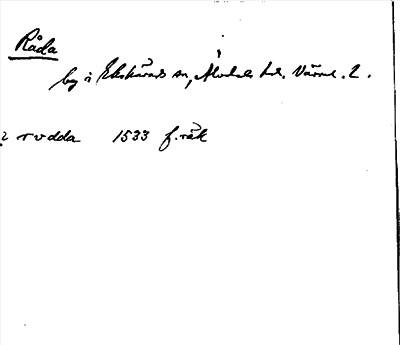 Råda
by i Ekshärads sn, Älvdals hd. Värml. l.
i rvdda 1533 f.räk